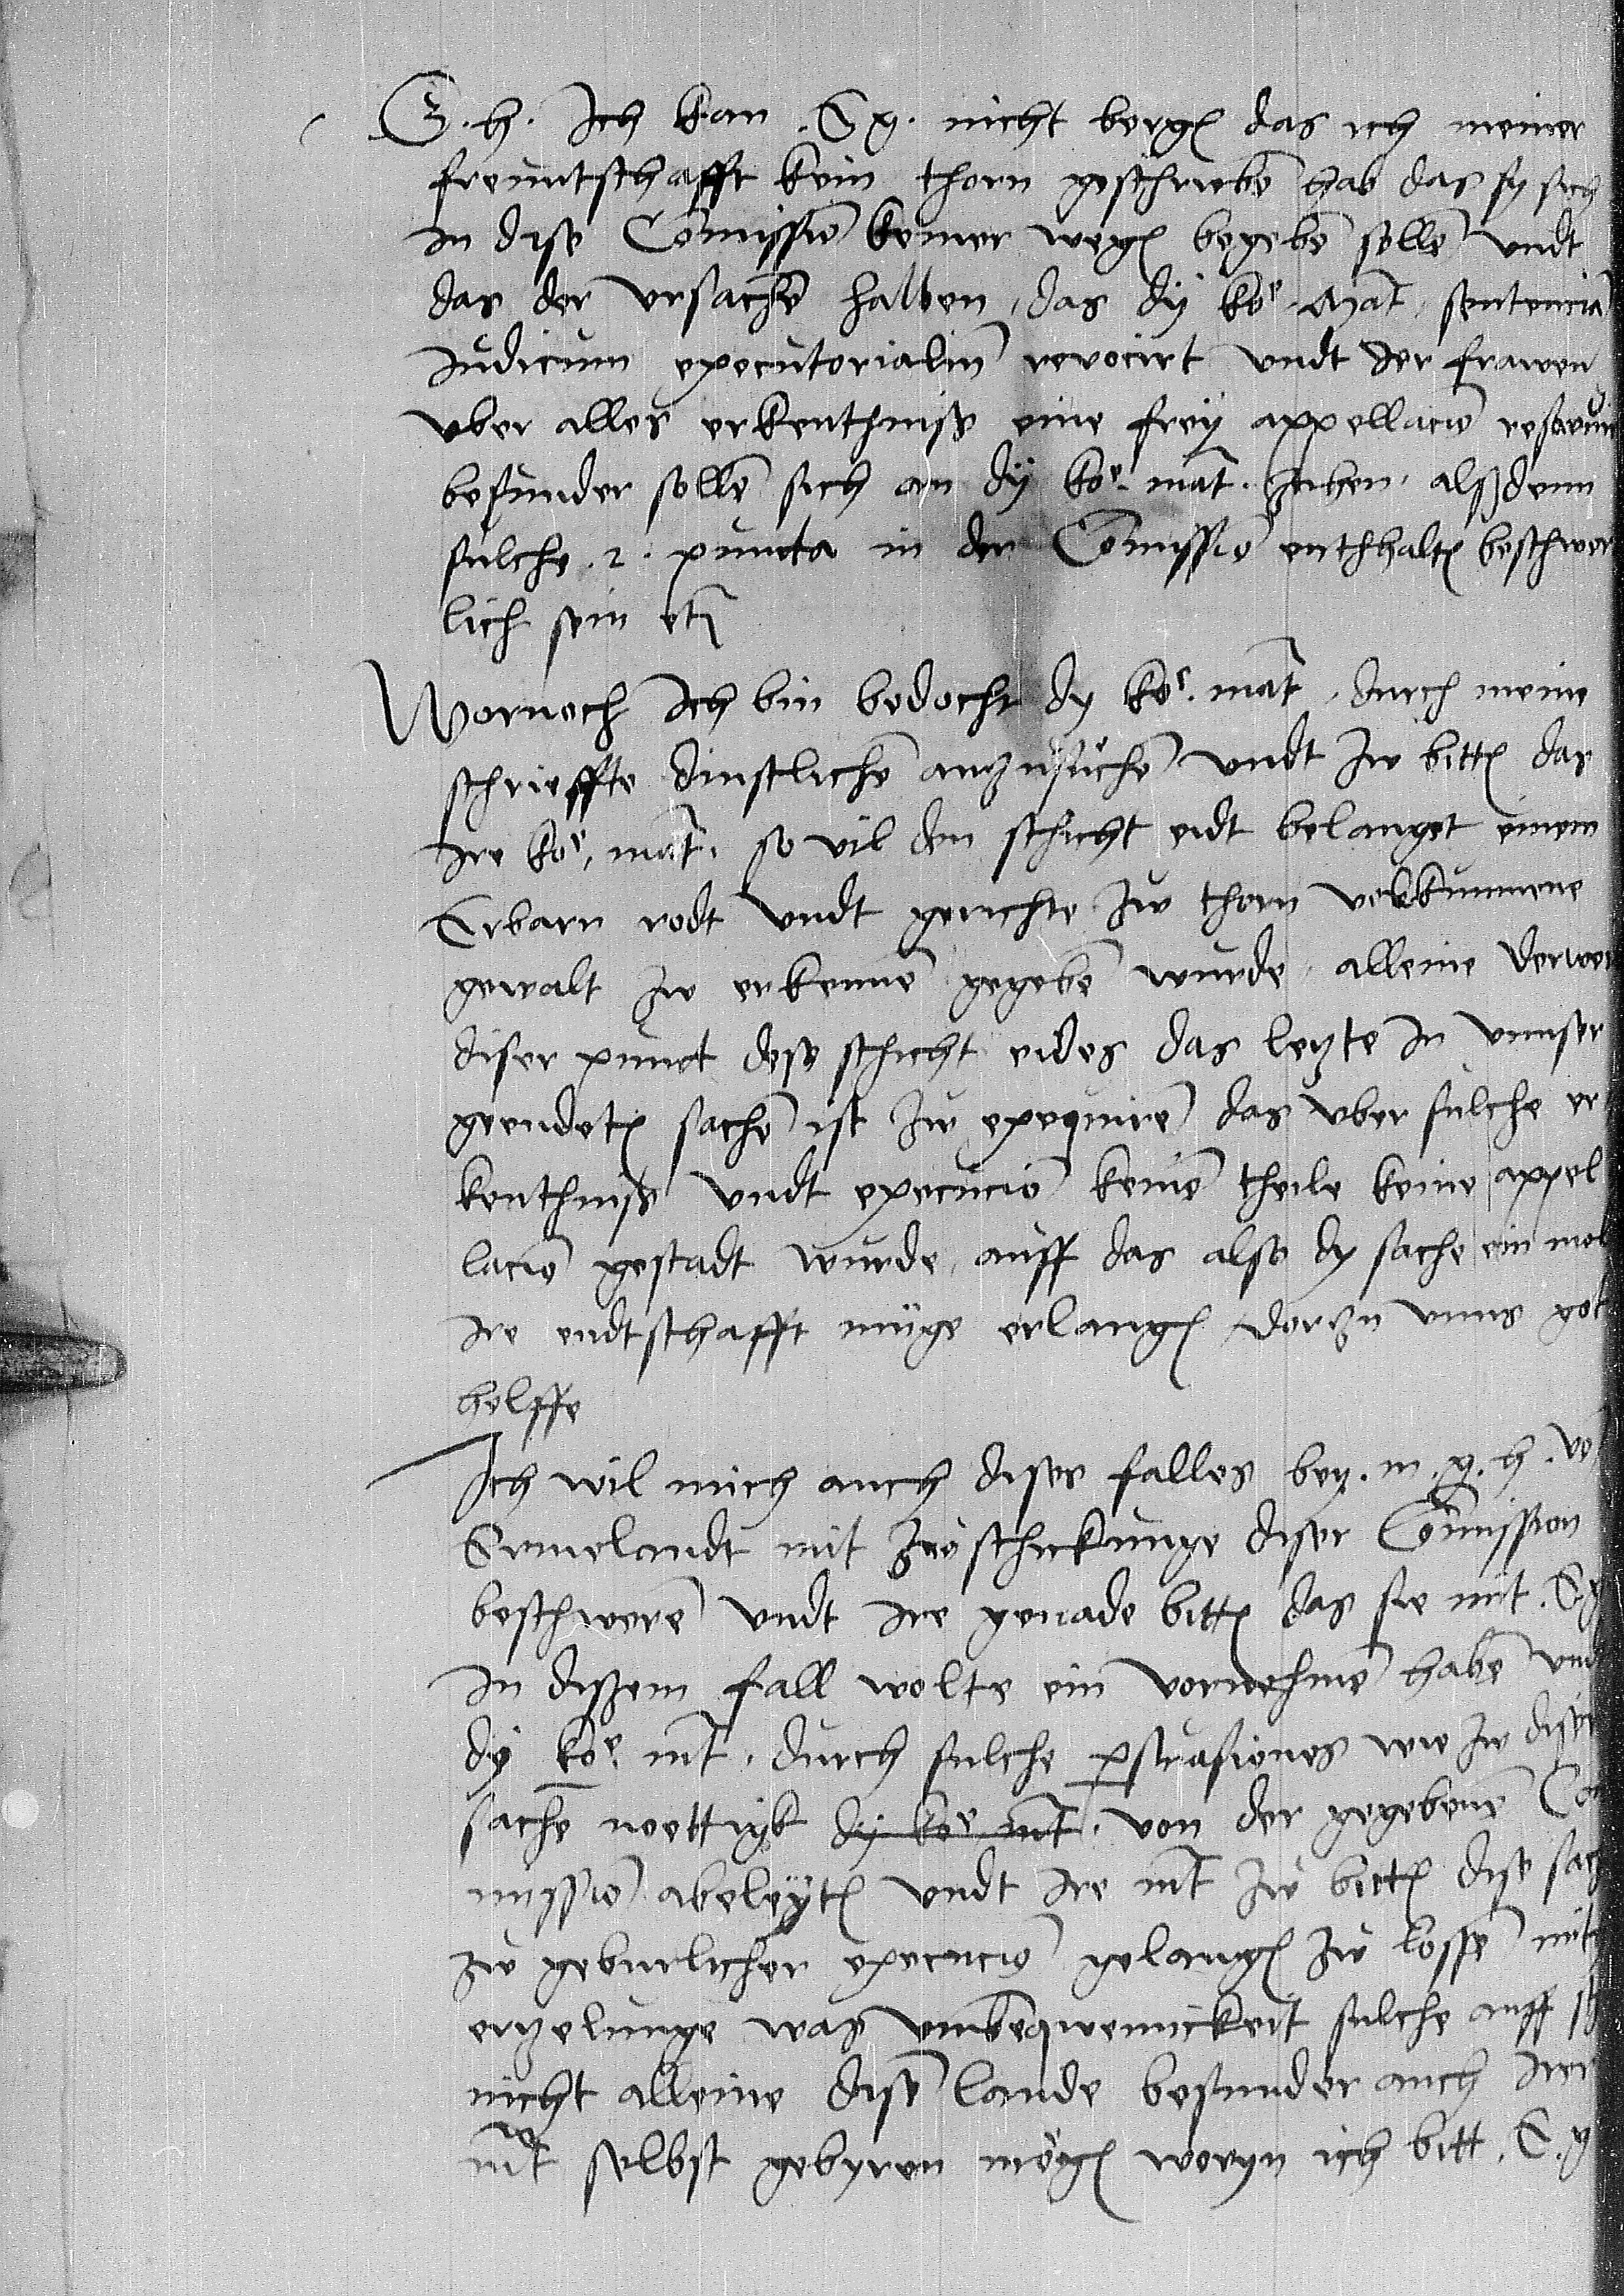 G. h. Ich kan E g. nicht bergen das ich meiner
freuntschafft kein thorn geschriebē hab das sy sich
in dise Cōmissiō keiner wegen begebē sollē vndt
das der vrsachē halben, das dÿ koe. Mat, sentenciā
iudicum executorialiū revocirt vndt der frawen
vber alles erkenthniß eine freÿ appellaciō
besunder sollē sich an dÿ koe. mat. alßdenn
sulche .2. puncta in der Cōmissiō enthhalten beschwer
lich sein etc
Wornoch ich bin bedocht dy koe. mat, durch meine
schrieffte dinstlichē anzusuchē vndt zw bitten das
ire koe, mat. so vil den schicht eidt belanget einem
Erbarn rodt vndt gerichte zw thorn volkummene
gewalt zw erkennē gegebē wurde, alleine derwe
diser punct dess schicht eides das letzte in vnnser
geendeten sachē ist zw exequirē das vber sulche er
kenthniß vndt execuciō keinē theile keine appel
laciō gestadt wurde, auff das also dy sache ein mol
ire endtschafft müge erlangen dorzu vnns got
helffe
Ich wil mich auch dises falles bey. m. g. h. vō
Ermelandt mit zwschickunge diser Cōmission
beschwerē vndt ire genade bitten das sie mit. E g
in dißem fall wolte ein vornehmē habē vnd
dÿ koe. mt. durch sulche persuasiones wie zw diser
sachē noettigk dy koe. mt. von der gegebenē Com
missiō abeleÿten vndt ire mt zw bitten dise sach
zw geburlicher execuciō gelangen zw lossē mit
erzelunge was vmbeqwemickeit sulche auff
nicht alleine disē lande besunder auch irer
mt selbst gebyren mögen woryn ich bitt. E. g